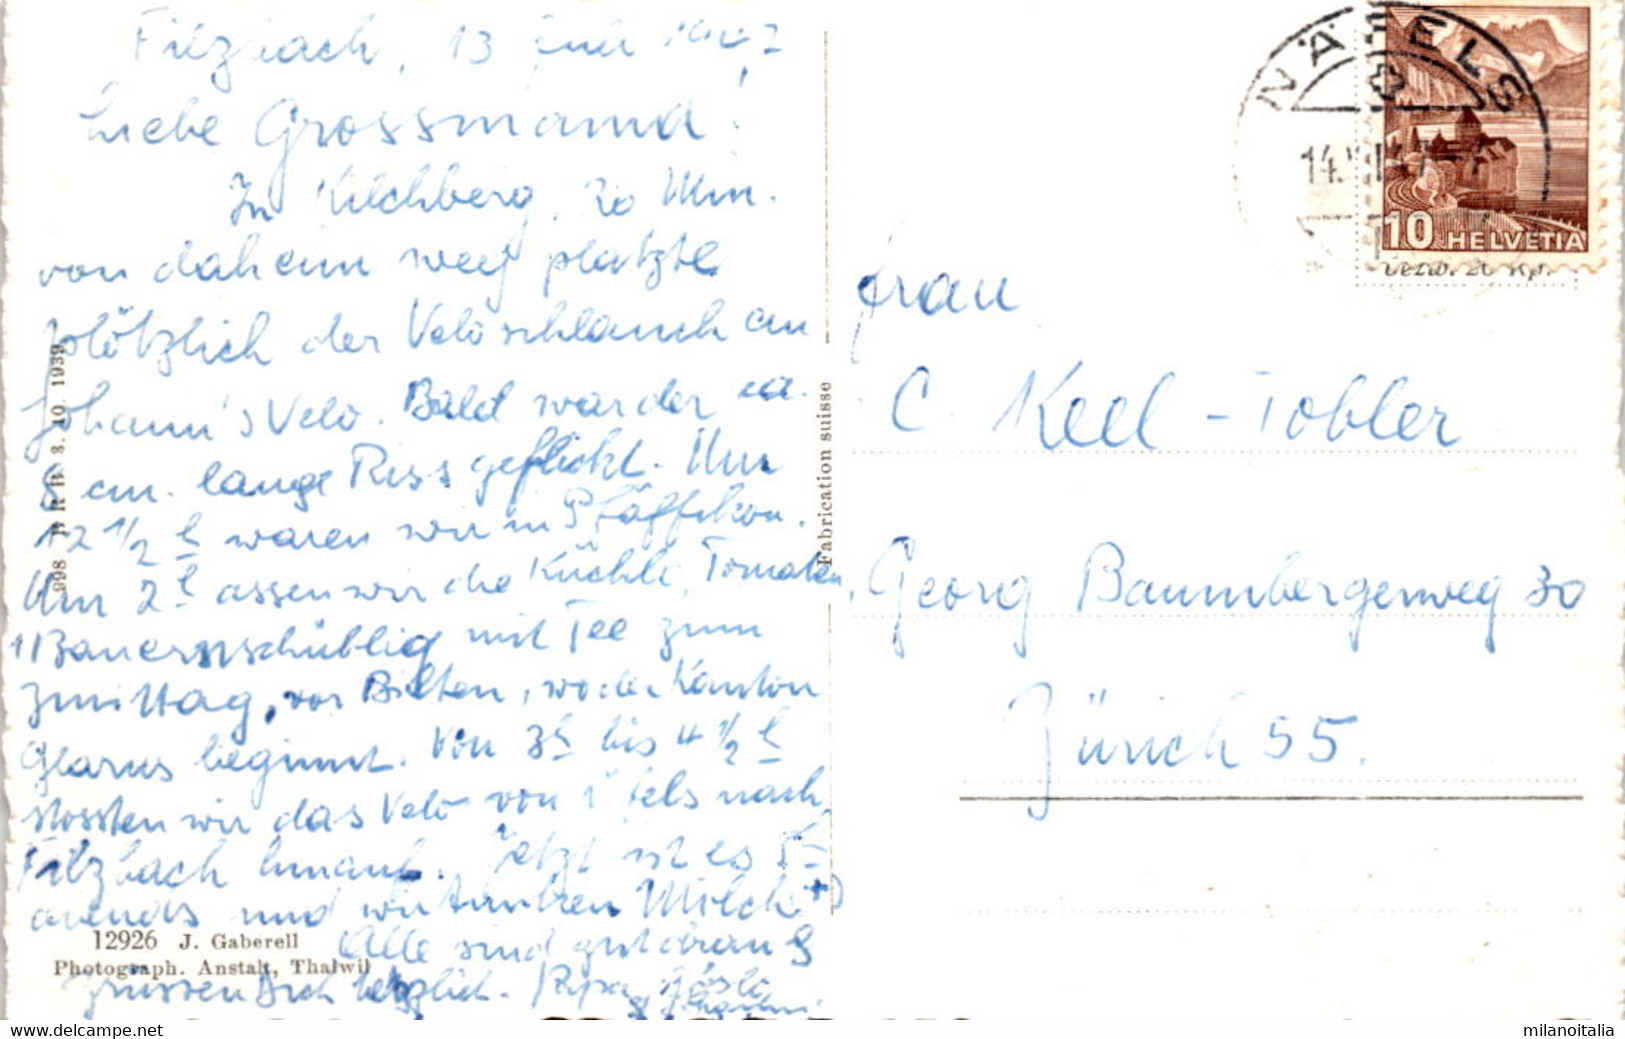 Filzbach, 13 Juli
Liebe Grossmama!
In Kilchberg, 20 Min.
von daheim weg platzte
plötzlich der Veloschlauch an
Johann's Velo. Bald war der ca.
8 cm. lange Riss geflickt. Um
12 1/2 h waren wir in Pfäffikon.
Um 2 h assen wir die Küchli, Tomaten,
1 Bauernschüblig mit Tee zum
Zmittag, vor Bilten, wo der Kanton
Glarus beginnt. Von 3 h bis 4 1/2 h
stossten wir das Velo von nach
Filzbach hinauf. Jetzt ist es
abends und wir trinken Milch
Alle sind gut dran &
grüssen Dich herzlich. Papa
998 3. 10. 1939
12926 J. Gaberell
Photograph. Anstalt, Thalwil
Fabrication suisse
NÄFELS
14.
10 HELVETIA
Frau
C Keel-Tobler
Georg Baumbergerweg 20
Zürich 55.
milanoitalia
www.delcampe.net